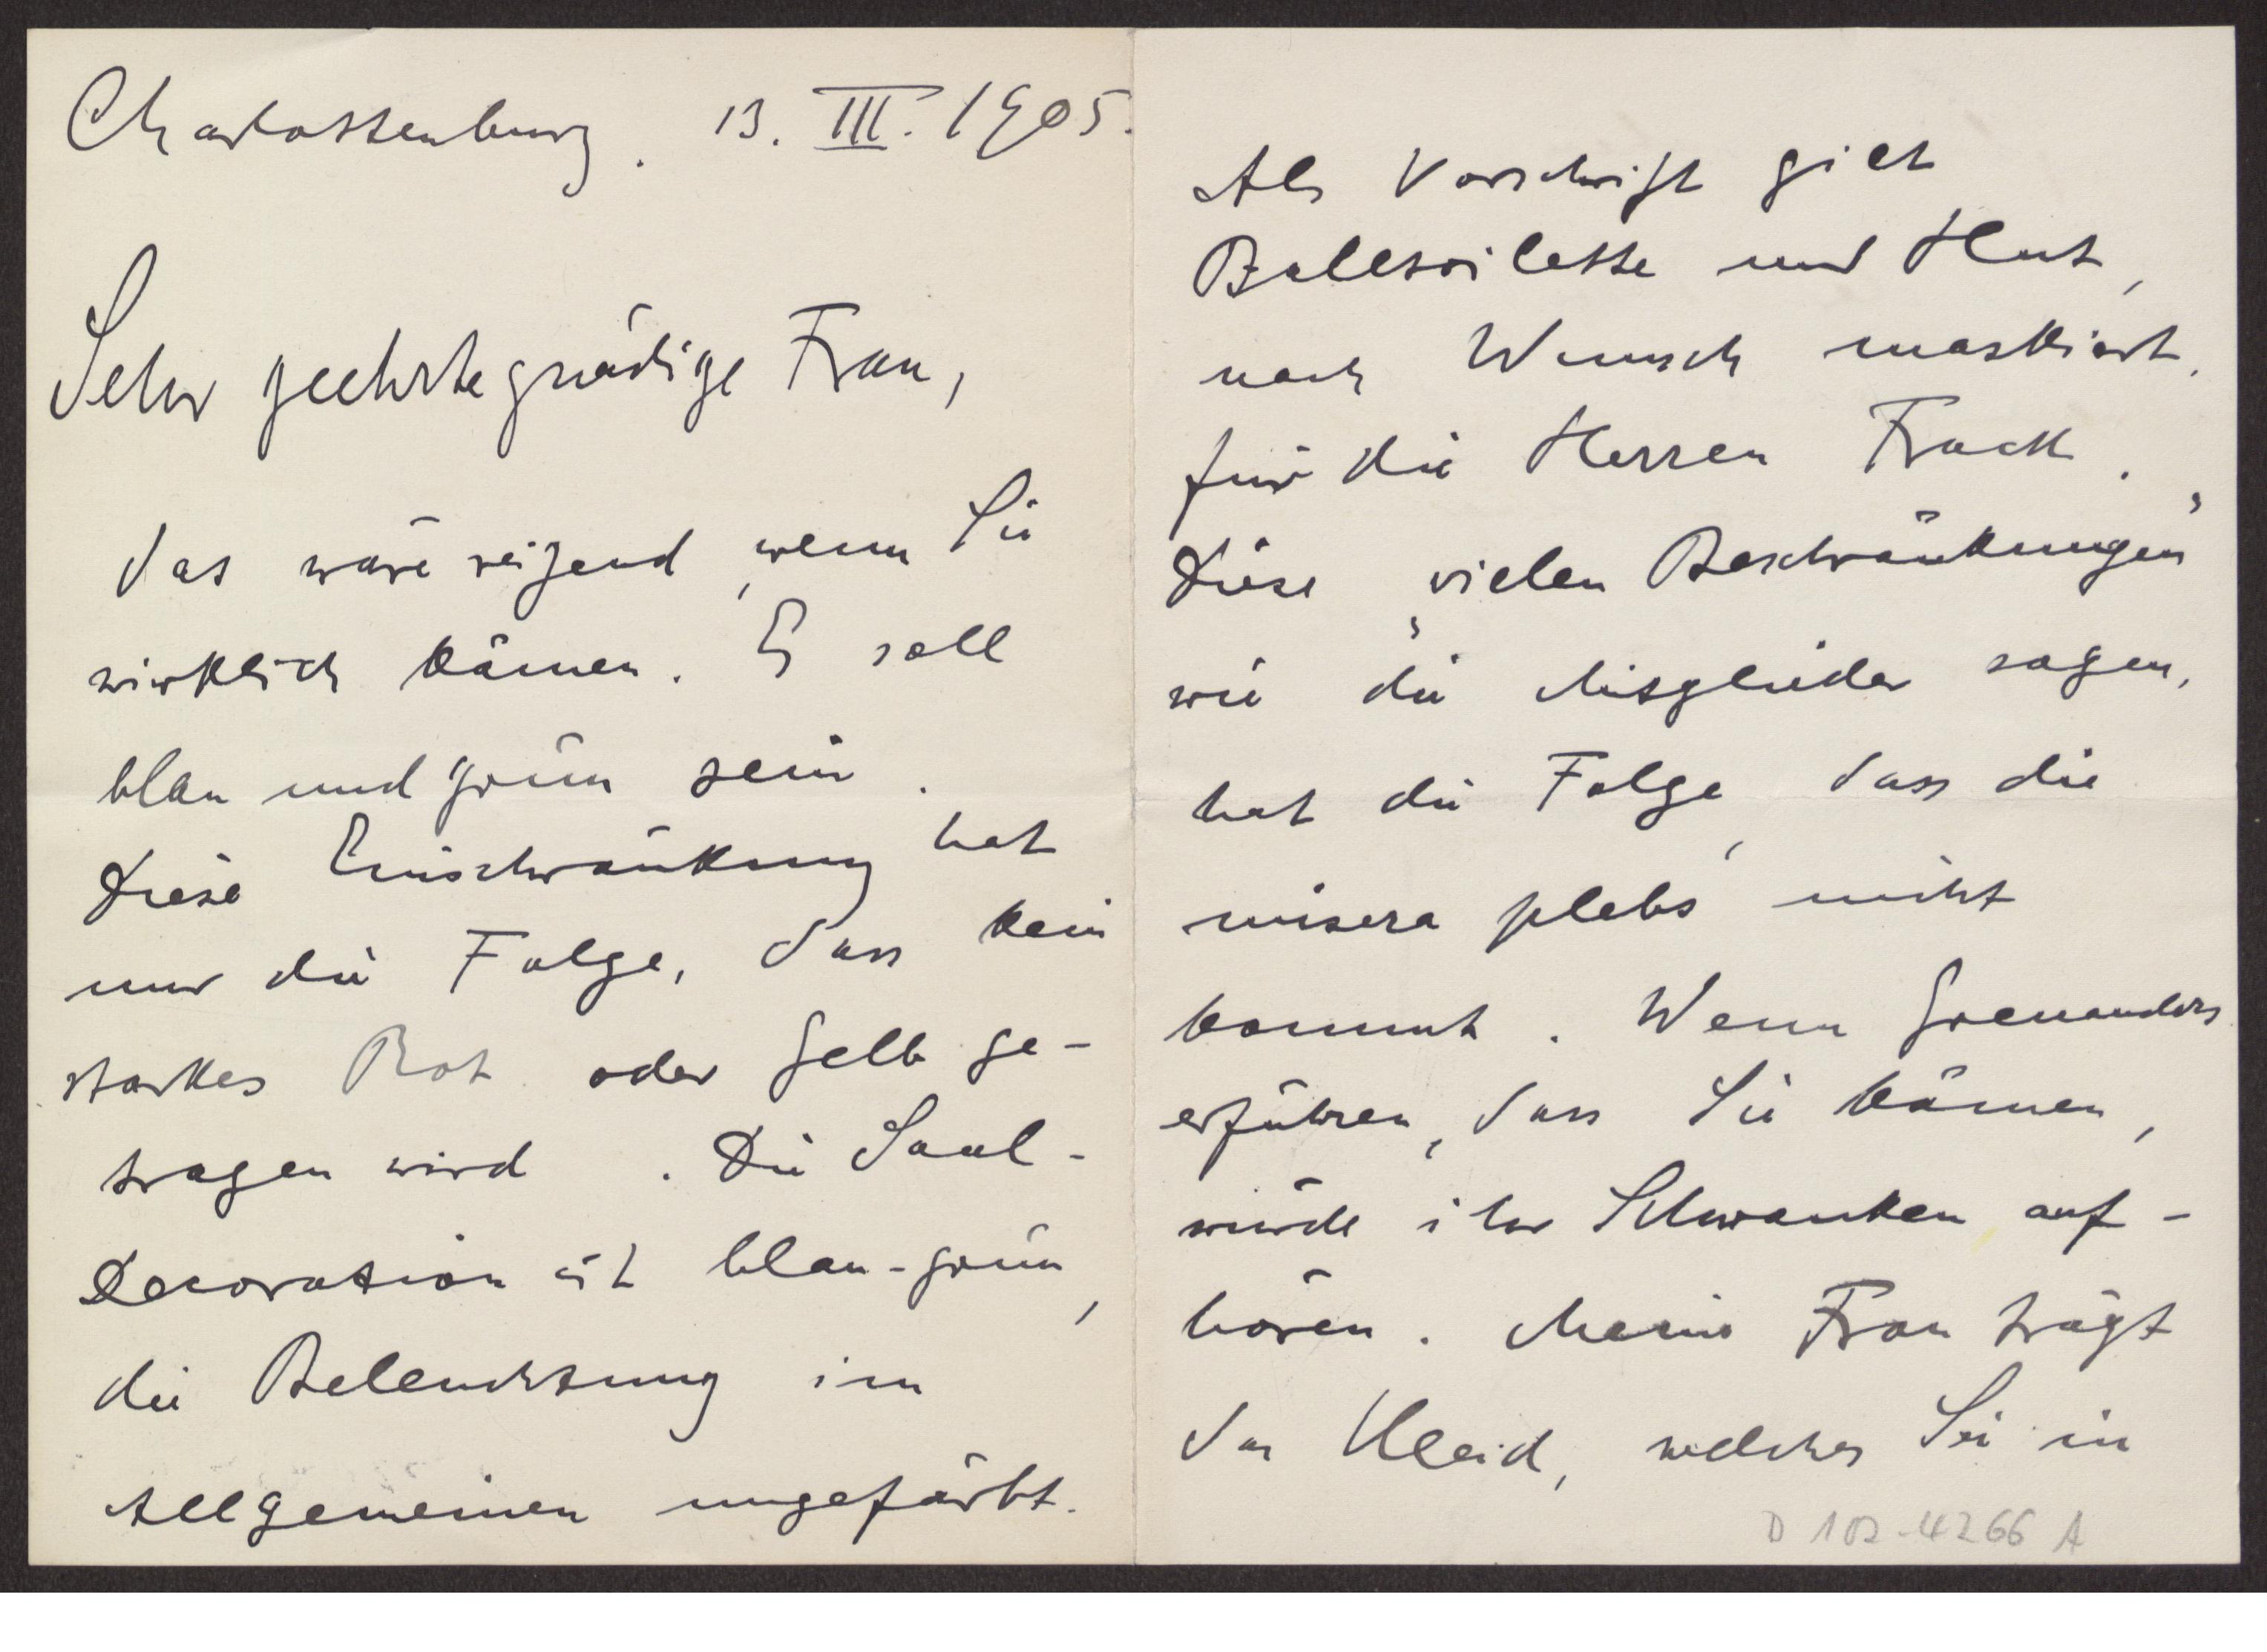 Charlottenburg. 13. III. 1905.
Sehr geehrte gnädige Frau,
das wäre reizend, wenn Sie
wirklich kämen. Es soll
blau und grün sein.
Diese Einschränkung hat
nur die Folge, dass kein
starkes Rot oder Gelb ge-
tragen wird. Die Saal-
Decoration ist blau-grün,
die Beleuchtung im
Allgemeinen ungefärbt.
Als Vorschrift gilt
Balltoilette und Hut,
nach Wunsch maskiert.
für die Herren Frack.
Diese „vielen Beschränkungen"
wie die Mitglieder sagen,
hat die Folge, dass die
misera plebs nicht
kommt. Wenn Grenanders
erführen, dass Sie kämen,
würde ihr Schwanken auf-
hören. Meine Frau trägt
das Kleid, welches Sie in
D 102-4266 A